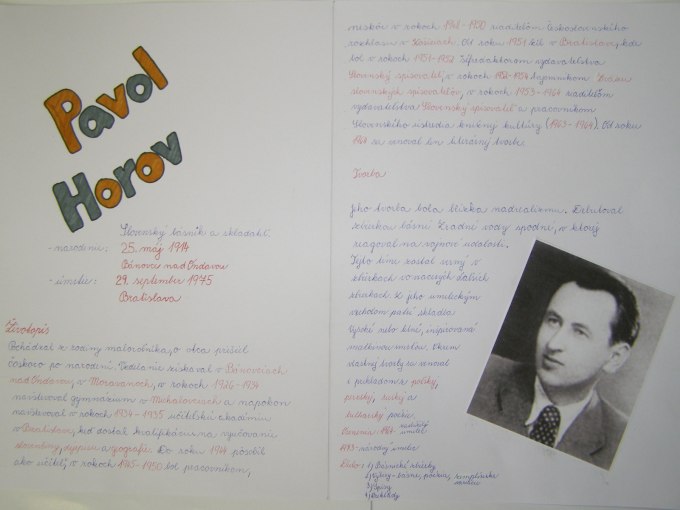 Pavol
Horov
Slovenský básnik a skladateľ.
- narodenie: 25. máj 1914
Bánovce nad Ondavou
- úmrtie: 29. september 1975
Bratislava
Životopis
Pochádzal z rodiny maloroľníka, o otca prišiel
čoskoro po narodení. Vzdelanie získaval v Bánovciach
nad Ondavou, v Moravanoch, v rokoch 1926-1934
navštevoval gymnázium v Michalovciach a napokon
navštevoval v rokoch 1934-1935 učiteľskú akadémiu
v Bratislave, keď dostal kvalifikáciu na vyučovanie
slovenčiny, dejepisu a geografie. Do roku 1944 pôsobil
ako učiteľ, v rokoch 1945-1950 bol pracovníkom,
neskôr v rokoch 1948-1950 riaditeľom Československého
rozhlasu v Košiciach. Od roku 1951 žil v Bratislave, kde
bol v rokoch 1951-1952 šéfredaktorom vydavateľstva
Slovenský spisovateľ, v rokoch 1952-1954 tajomníkom Zväzu
slovenských spisovateľov, v rokoch 1953-1964 riaditeľom
vydavateľstva Slovenský spisovateľ a pracovníkom
Slovenského ústredia knižnej kultúry (1963-1964). Od roku
1964 sa venoval len literárnej tvorbe.
Tvorba
Jeho tvorba bola blízka nadrealizmu. Debutoval
zbierkou básní Zradné vody spodné, v ktorej
reagoval na vojnové udalosti.
Tejto téme zostal verný v
zbierkach vo viacerých ďalších
zbierkach. K jeho umeleckým
vrcholom patrí skladba
Vysoké letné nebo, inšpirovaná
matkinou smrťou. Okrem
vlastnej tvorby sa venoval
i prekladom z poľskej,
českej, ruskej a
bulharskej poézie.
Ocenenia 1964 zaslúžilý
umelec
1973 - národný umelec
Dielo: 1) Básnické zbierky
2) Výbery - básne, poézia,
3) Spisy
4) Preklady